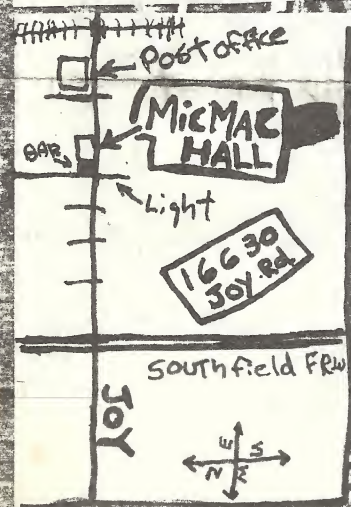 Post office
MicMAC
HALL
BAR
Light
16630
JOY.Rd.
SOUTHfield FRW
JOY
E
S
N
W